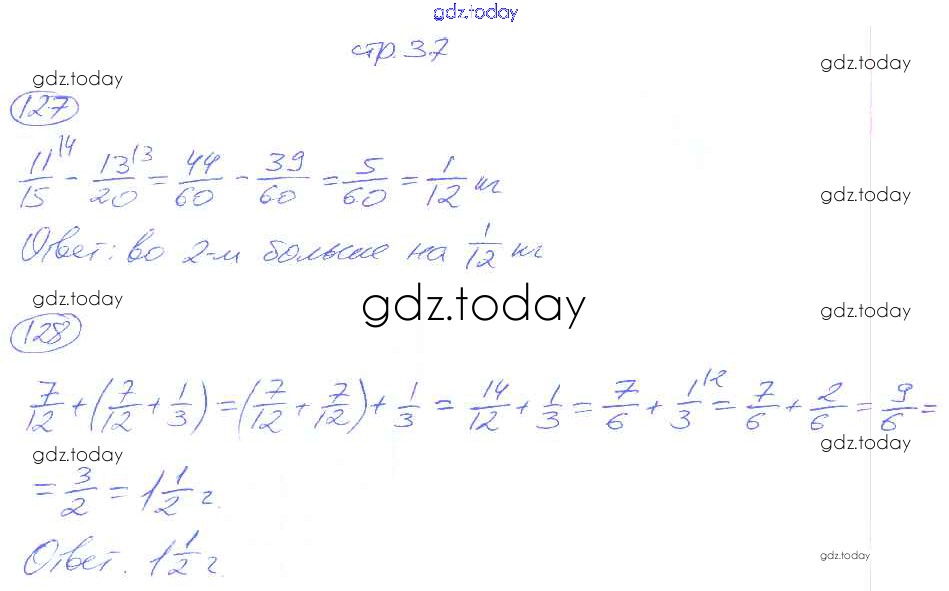 gdz.today
стр. 37
gdz.today gdz.today
127
11/15 |4 - 13/20 |3 = 44/60 - 39/60 = 5/60 = 1/12 кг
gdz.today
Ответ: во 2-м больше на 1/12 кг
gdz.today gdz.today gdz.today
128
7/12 + (7/12 + 1/3) = (7/12 + 7/12) + 1/3 = 14/12 + 1/3 = 7/6 + 1/3 |2 = 7/6 + 2/6 = 9/6 =
gdz.today gdz.today
= 3/2 = 1 1/2 г.
Ответ. 1 1/2 г.
gdz.today